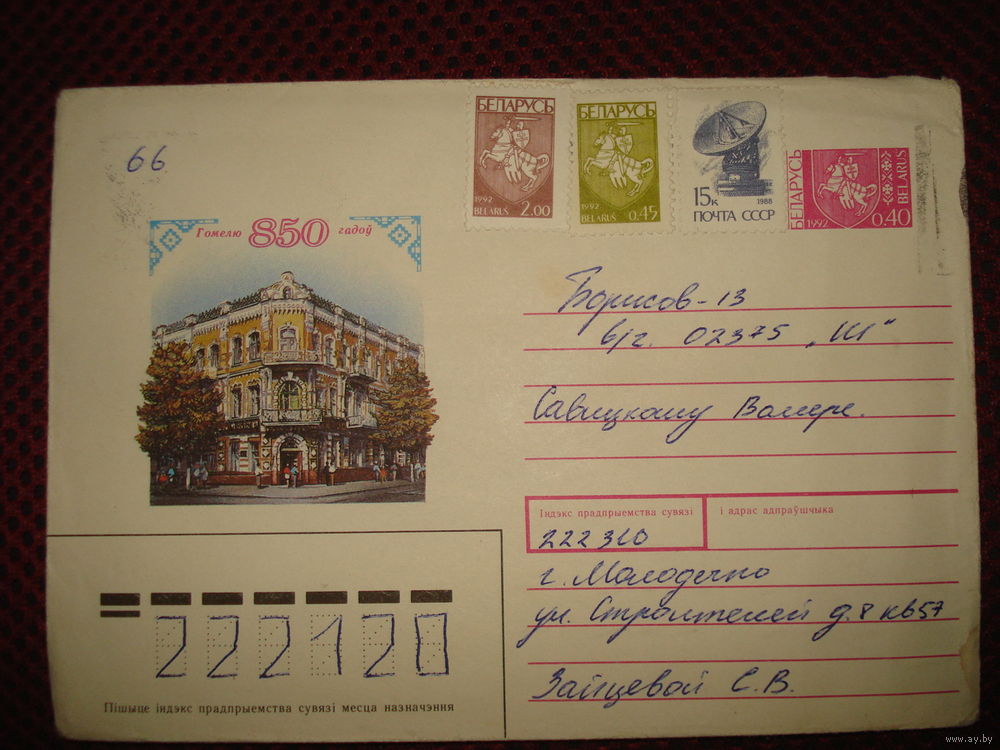 66
БЕЛАРУСЬ
1992
BELARUS
2.00
БЕЛАРУСЬ
1992
BELARUS
0.45
15к
1988
ПОЧТА СССР
БЕЛАРУСЬ
1992
0.40
BELARUS
Гомелю 850 гадоў
Борисов-13
в/г. 02375 „Ш"
Савицкому Валере.
Індэкс прадпрыемства сувязі
і адрас адпраўшчыка
222310
г. Молодечно
ул. Строителей д.8 кв57
Зайцевой С.В.
222120
Пішыце індэкс прадпрыемства сувязі месца назначэння
www.ay.by